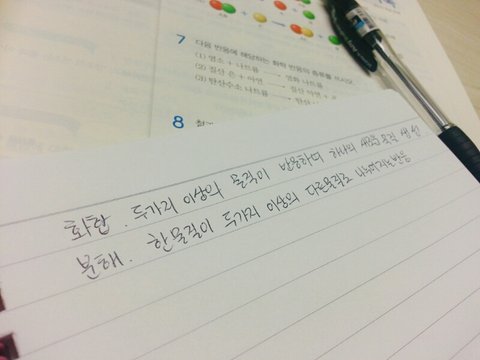 7 다음 반응에 해당하는 화학 반응의 종류를 쓰시오.
(1) 염소 + 나트륨 → 염화 나트륨
(2) 질산 은 + 아연 → 질산 아연 +
(3) 탄산수소 나트륨 → 탄산
8
화합. 두가지 이상의 물질이 반응하며 하나의 새로운 물질 생성
분해. 한물질이 두가지 이상의 다른물질로 나누어지는반응